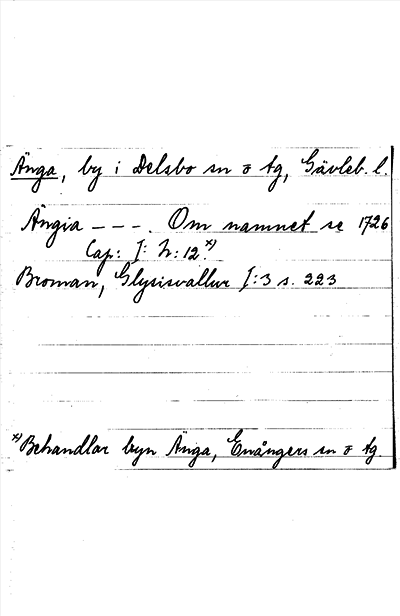 Änga, by i Delsbo sn o tg, Gävleb. l.
Ängia - - - . Om namnet se 1726
Cap: I: N: 12.*)
Broman, Glysisvallur I:3 s. 223
*) Behandlar byn Änga, Enångers sn o tg.